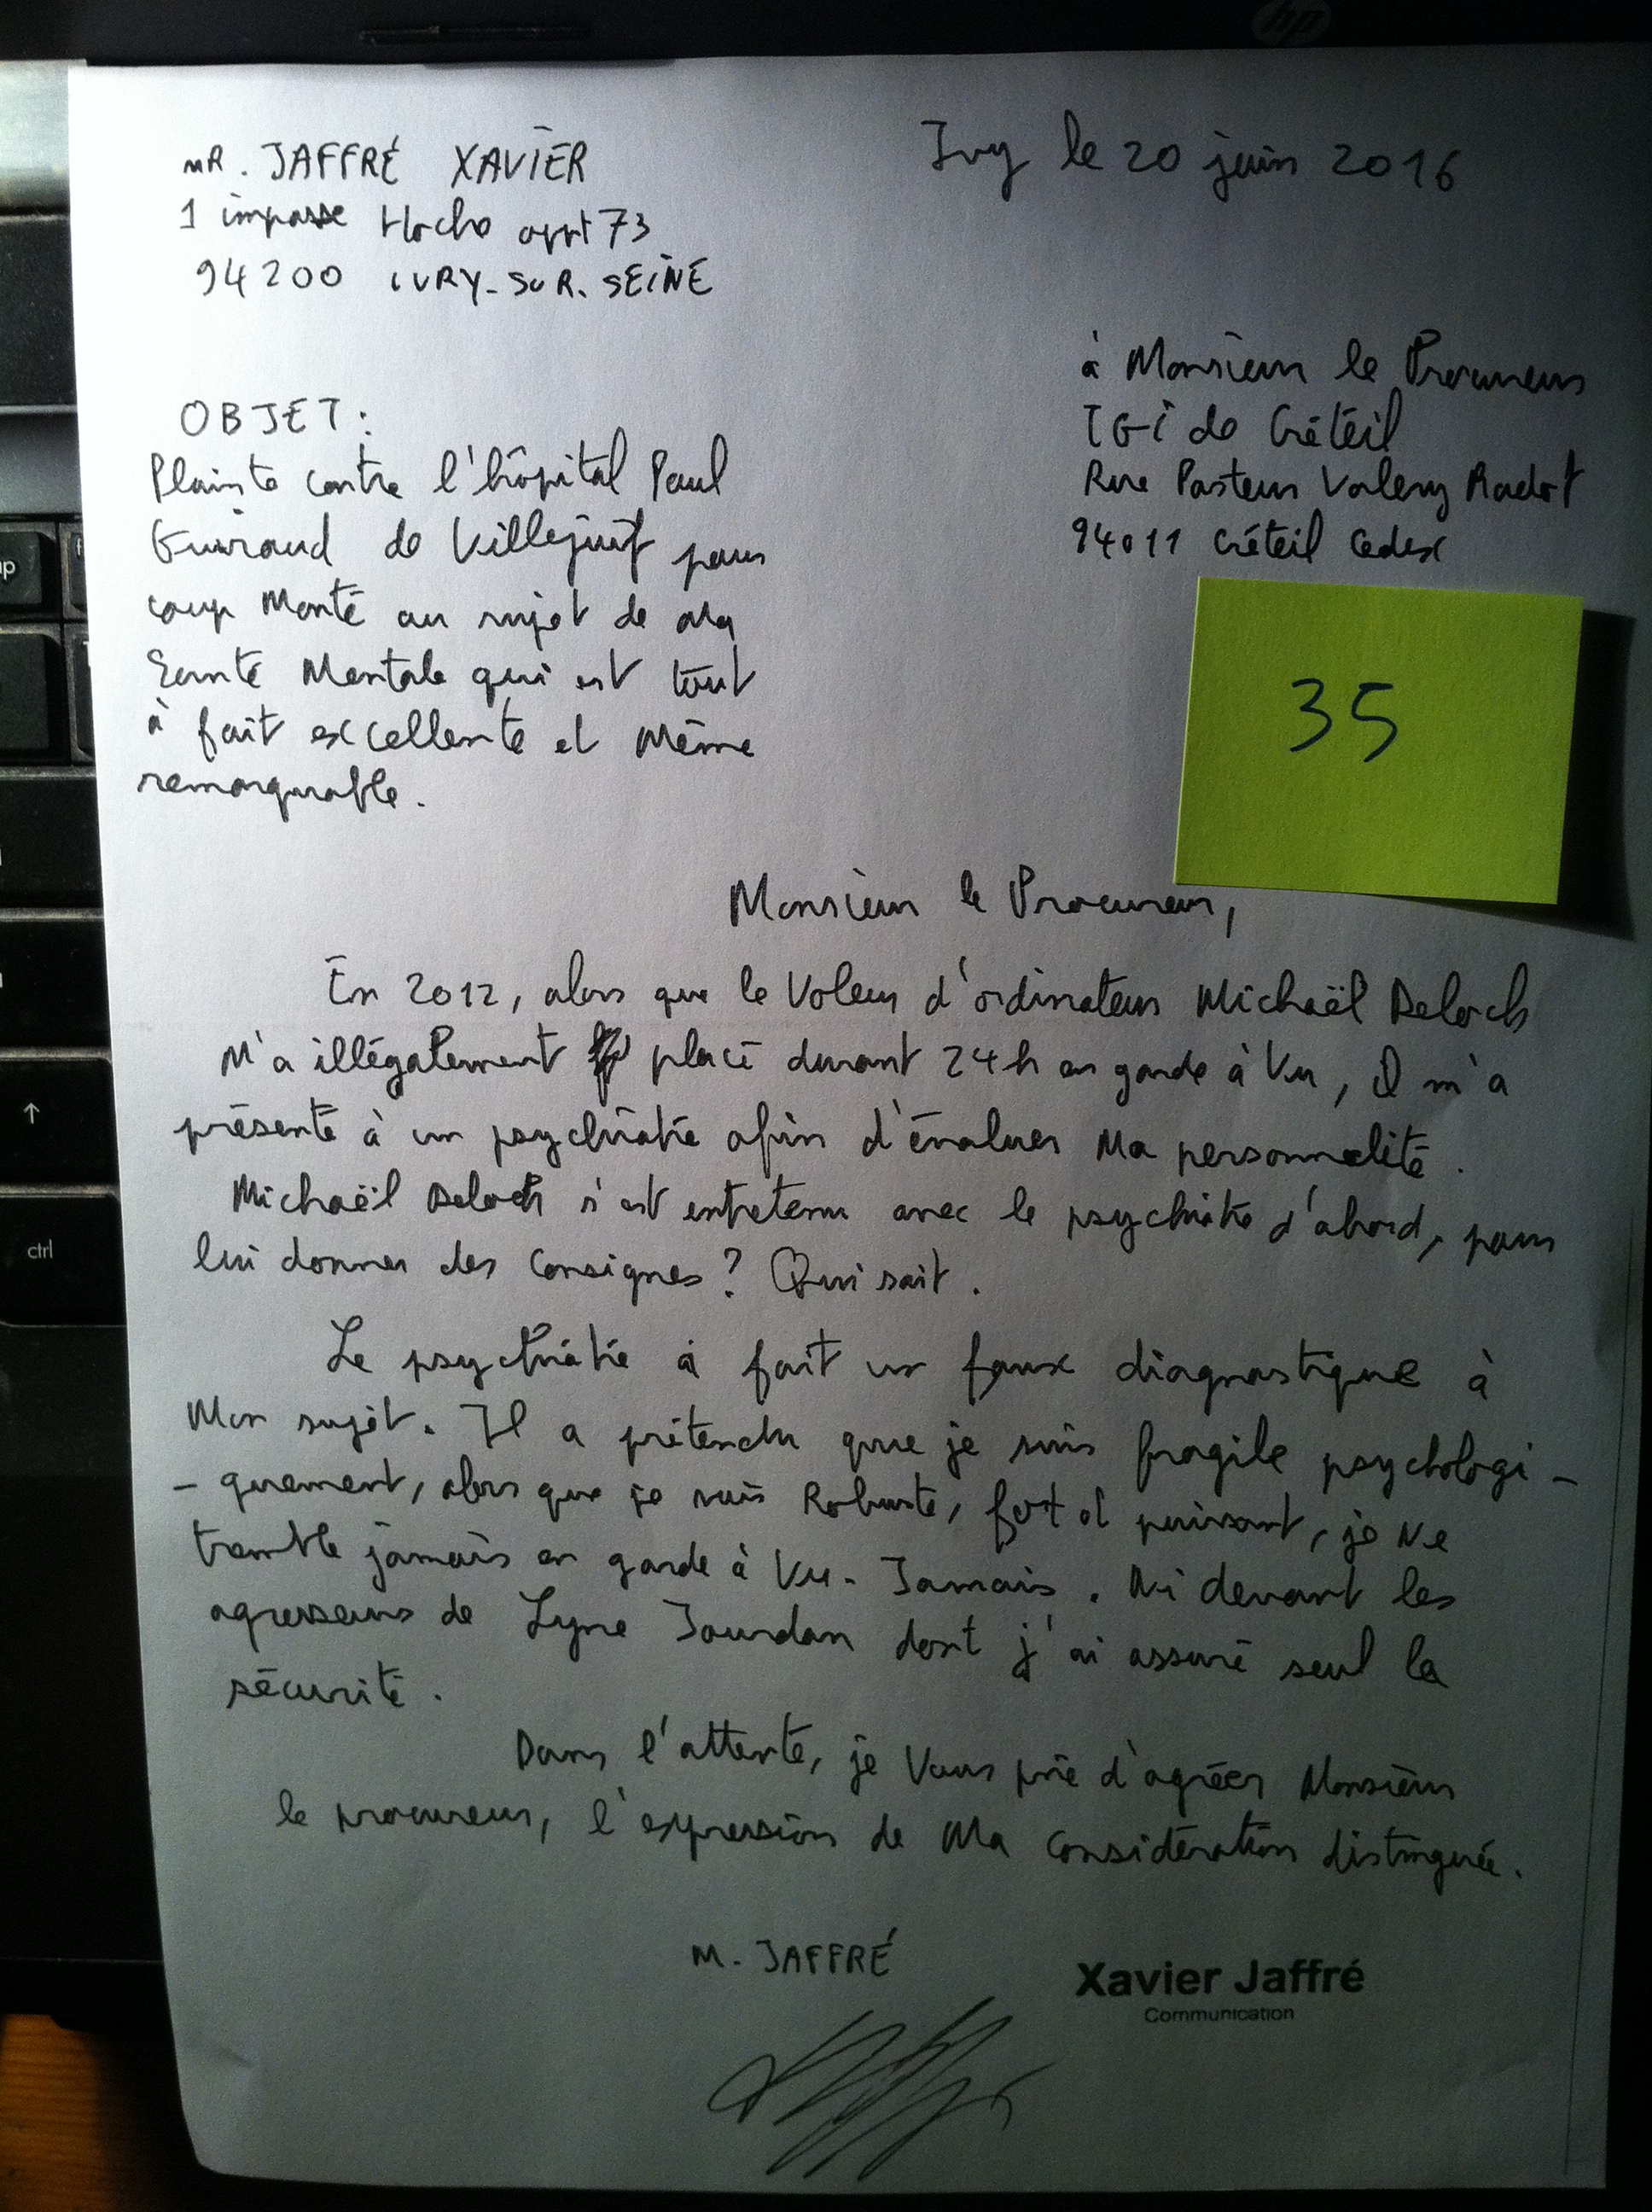 MR. JAFFRÉ XAVIER
Ivry le 20 juin 2016
1 impasse Hoche appt 73
94200 IVRY-SUR-SEINE
à Monsieur le Procureur
TGI de Créteil
Rue Pasteur Valery Radot
94011 Créteil Cedex
OBJET :
Plainte contre l'hôpital Paul
Guiraud de Villejuif pour
coup Monté au sujet de Ma
Santé Mentale qui est tout
à fait excellente et Même
remarquable.
35
Monsieur le Procureur,
En 2012, alors que le Voleur d'ordinateur Michaël Deloch
M'a illégalement placé durant 24h en garde à Vu, il m'a
présenté à un psychiatre afin d'évaluer Ma personnalité.
Michaël Deloch s'est entretenu avec le psychiatre d'abord, pour
lui donner des Consignes ? Qui sait.
Le psychiatre à fait un faux diagnostique à
Mon sujet. Il a prétendu que je suis fragile psychologi-
-quement, alors que je suis Robuste, fort et puissant, je Ne
tremble jamais en garde à Vu. Jamais. Ni devant les
agresseurs de Lyne Jourdan dont j'ai assuré seul la
sécurité.
Dans l'attente, je Vous prie d'agréer Monsieur
le procureur, l'expression de Ma Considération distinguée.
M. JAFFRÉ
Xavier Jaffré
Communication
hp
ctrl
↑